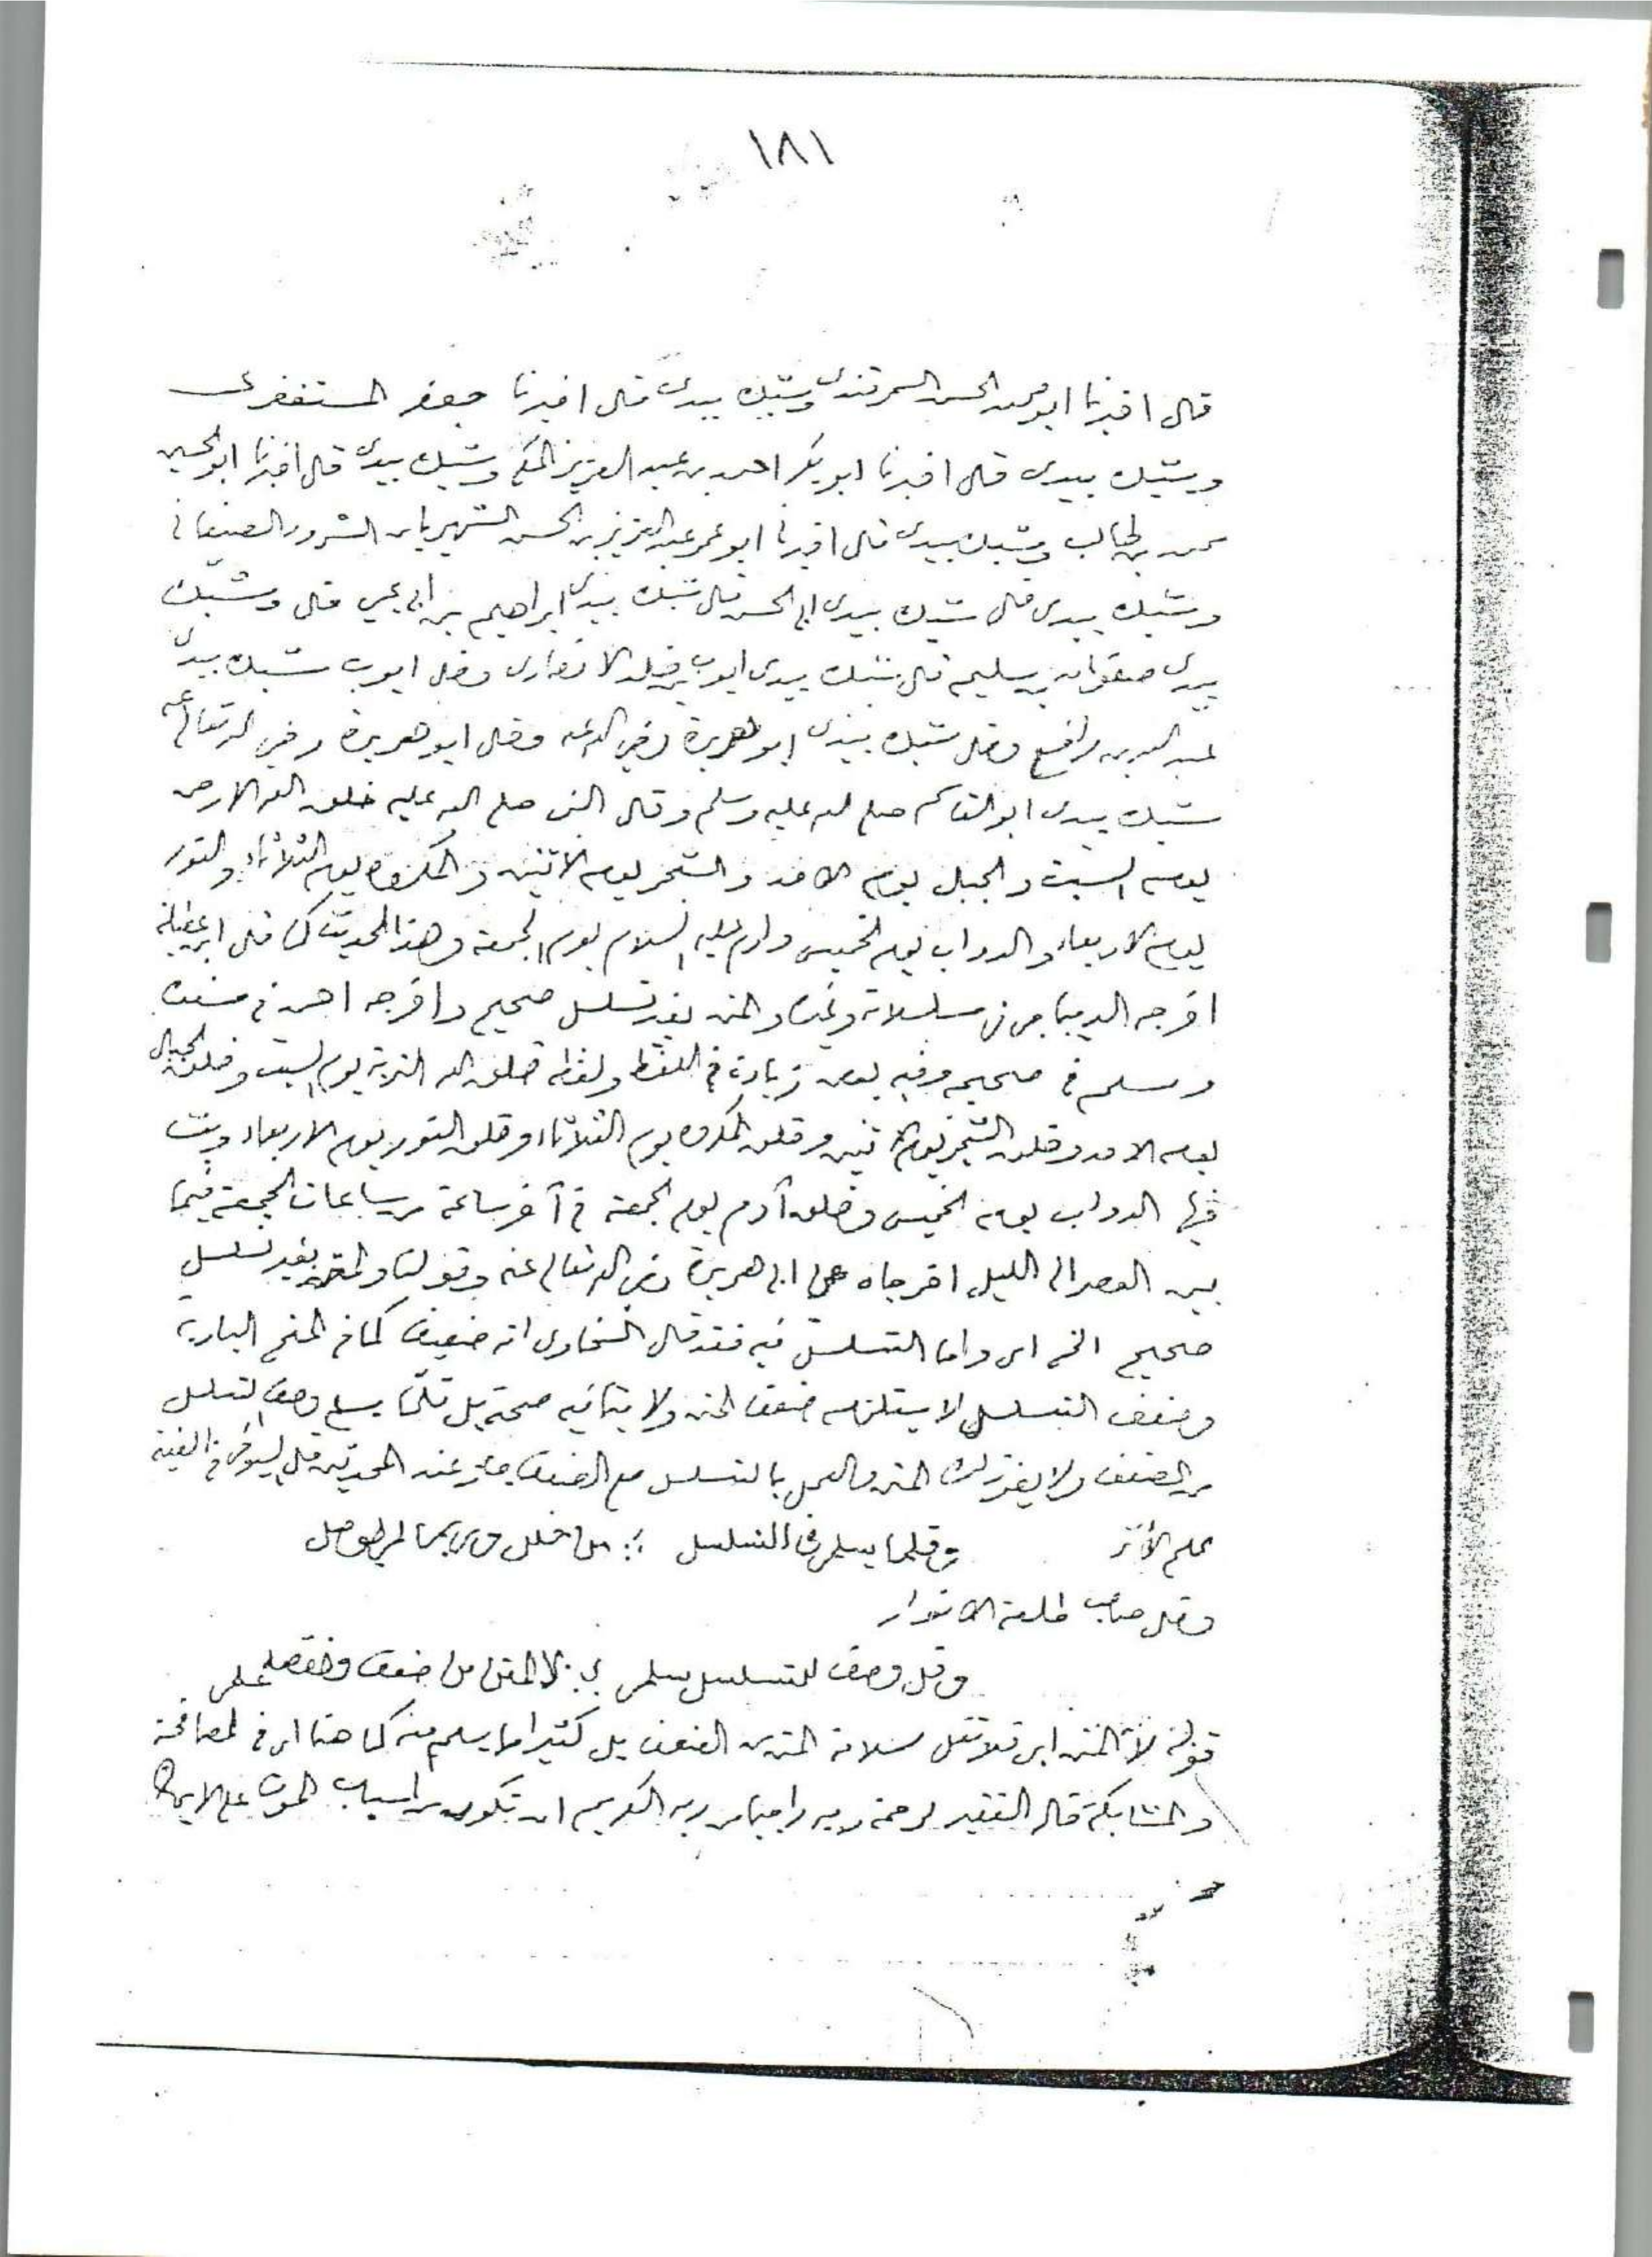 ١٨١
قال اخبرنا ابو محمد الحسن السمرقندى وشبك بيدى قال اخبرنا جعفر المستغفرى
وشبك بيدى قال اخبرنا ابوبكر احمد بن عبد العزيز المكى وشبك بيدى قال اخبرنا ابو الحسين
محمد بن طالب وشبك بيدى قال اخبرنا ابو عمر عبد العزيز بن الحسن الشهير بابن الشرود الصنعانى
وشبك بيدى قال شبك بيدى ابى الحسن قال شبك بيدى ابراهيم بن ابى يحيى قال وشبك
بيدى صفوان بن سليم قال شبك بيدى ايوب بن خلد الانصارى وقال ايوب شبك بيدى
عبد الله بن رافع وقال شبك بيدى ابو هريرة رضي الله عنه وقال ابو هريرة رضي الله تعالى عنه
شبك بيدى ابو القاسم صلى الله عليه وسلم وقال النبى صلى الله عليه خلق الله الارض
يوم السبت والجبال يوم الاحد والشجر يوم الاثنين والمكروه يوم الثلاثاء والنور
يوم الاربعاء والدواب يوم الخميس وادم عليه السلام يوم الجمعة وهذا الحديث كما قال ابن عقيلة
اخرجه الديباجى فى مسلسلاته والمتن بغير تسلسل صحيح واخرجه احمد فى مسنده
ومسلم فى صحيحه وفيه بعض زيادة فى اللفظ ولفظه خلق الله التربة يوم السبت وخلق الجبال
يوم الاحد وخلق الشجر يوم الاثنين وخلق المكروه يوم الثلاثاء وخلق النور يوم الاربعاء وبث
فيها الدواب يوم الخميس وخلق آدم يوم الجمعة فى آخر ساعة من ساعات الجمعة فيما
بين العصر الى الليل اخرجاه عن ابى هريرة رضى الله تعالى عنه وقولنا والمتن بغير تسلسل
صحيح الخ اى واما التسلسل فيه فقد قال السخاوى انه ضعيف كما فى المنح البادية
وضعف التسلسل لا يستلزم ضعف المتن ولا ينافيه صحته بل قلما يسلم وصف التسلسل
من الضعف ولا يضر ذلك المتن والعمل بالتسلسل مع الضعف جائز عند المحدثين قال السيوطى فى الفية
علم الأثر وقلما يسلم فى التسلسل ؛ من خلل وربما لم يوصل
وقال صاحب طلعة الانوار
وقل وصف للتسلسل سلم ؛ لا المتن من ضعف
قوله لا المتن اى فلا تقل سلامة المتن من الضعف بل كثيرا ما يسلم منه كما هنا اى فى المصافحة
والمشابكة قال الفقير لرحمة ربه راجيا من ربه الكريم ان تكون من اسباب الموت على الايمان